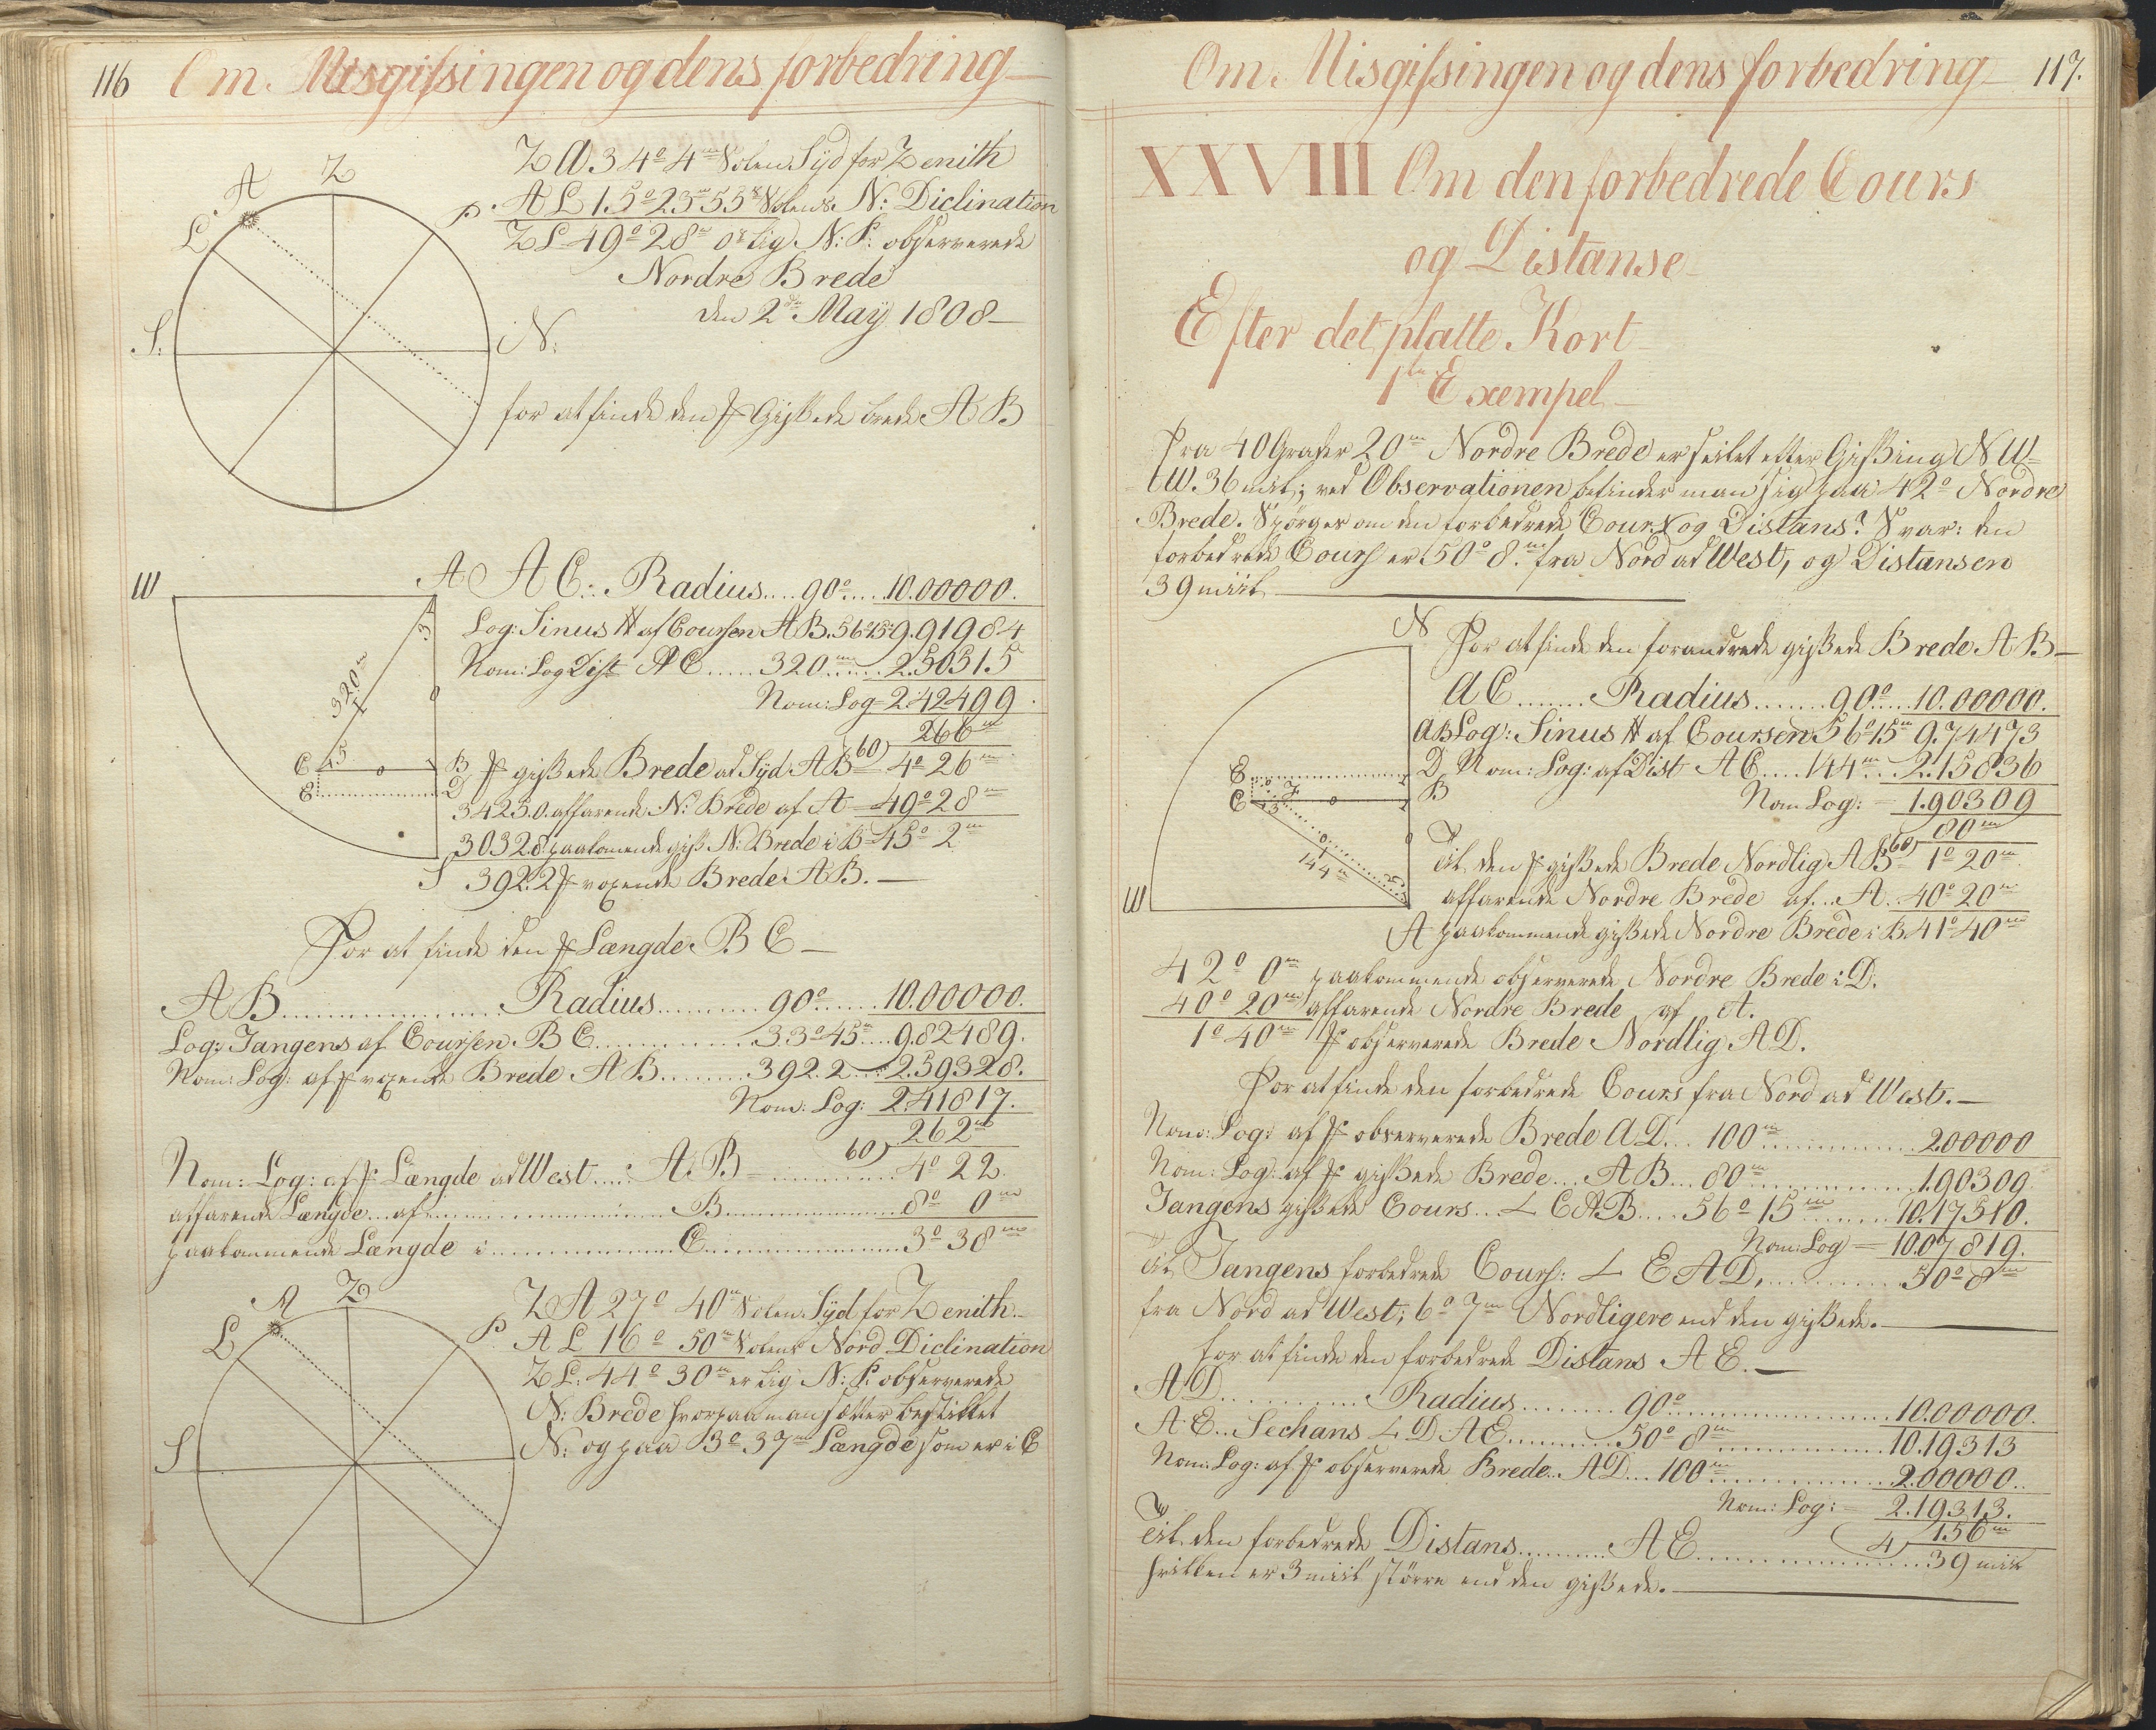 116 Om Misgissingen og dens forbedring
Z A 34° 4m Solen Syd for Zenith
A L 15° 23m 55s Solens N: Diclination
Z L 49° 28m 0s lig N: P: observerede
Nordre Brede
den 2den May 1808
Z
A
L
P
S:
N:
for at finde den Gissede brede A B
W
A
A C. Radius.... 90°.... 10.00000.
Log: Sinus af Coursen A B. 56°15m 9.91984
Nom: Log Dist A C..... 320m..... 2.50515
Nom: Log = 2.42499
266m
320m
3
5
C
B
E
D
S
gissede Brede ad Syd A B 60) 4° 26m
3425.0. affarende N: Brede af A 49° 28m
3032.8 paakomende giss N: Brede i B = 45° 2m
392.2 voxende Brede A B.
For at finde den Længde B C
A B............ Radius.......... 90°...... 10.00000.
Log: Tangens af Coursen B C............ 33°45m.... 9.82489.
Nom: Log: af voxende Brede A B........ 392.2.... 2.59328.
Nom: Log: 2.41817.
262m
Nom: Log: af Længde ad West.... A B = 60) ........ 4° 22.
affarende Længde... af............ B............ 8° 0m
paakommende Længde i............ C............ 3° 38m
Z
A
L
P
S
Z A 27° 40m Solen Syd for Zenith
A L 16° 50m Solens Nord Diclination
Z L: 44° 30m er lig N: P: observerede
N: Brede hvorpaa man sætter bestikket
N: og paa 3° 37m Længde som er i C
Om Misgissingen og dens forbedring 117.
XXVIII Om den forbedrede Cours
og Distanse
Efter det platte Kort
1te Exempel
Fra 40 Grader 20m Nordre Brede er seilet efter Gissing NW
tW. 36 miil; ved Observationen befinder man sig paa 42° Nordre
Brede. Spörges om den forbedrede Cours og Distans? Svar: den
forbedrede Cours er 50° 8m fra Nord ad West, og Distansen
39 miil
N
For at finde den forandrede gissede Brede A B
A C........ Radius....... 90°.... 10.00000.
A B Log: Sinus af Coursen 56°15m 9.74473
D Nom: Log: af Dist A C.... 144m... 2.15836
E
C
B
144m
Nom Log: = 1.90309
80m
til den gissede Brede Nordlig A B 60) 1° 20m
W
affarende Nordre Brede af... A.. 40° 20m
A paakommende gissede Nordre Brede i B 41° 40m
42° 0m paakommende observerede Nordre Brede i D.
40° 20m affarende Nordre Brede af A.
1° 40m observerede Brede Nordlig A D.
For at finde den forbedrede Cours fra Nord ad West.
Nom: Log: af observerede Brede A D... 100m............ 2.00000
Nom: Log: af gissede Brede... A B... 80m............ 1.90309.
Tangens gissede Cours... ∠ C A B.... 56° 15m........ 10.17510.
Nom: Log = 10.07819.
til Tangens forbedrede Cours: ∠ E A D,........... 50° 8m
fra Nord ad West; 6° 7m Nordligere end den gissede.
for at finde den forbedrede Distans A E.
A D............ Radius........ 90°............ 10.00000.
A E.. Sechans ∠ D A E.......... 50° 8m............ 10.19313
Nom: Log: af observerede Brede.. A D... 100m............ 2.00000..
Nom: Log: = 2.19313.
4) 156m
til den forbedrede Distans......... A E............ 39 miil
hvilken er 3 miil större end den gissede.